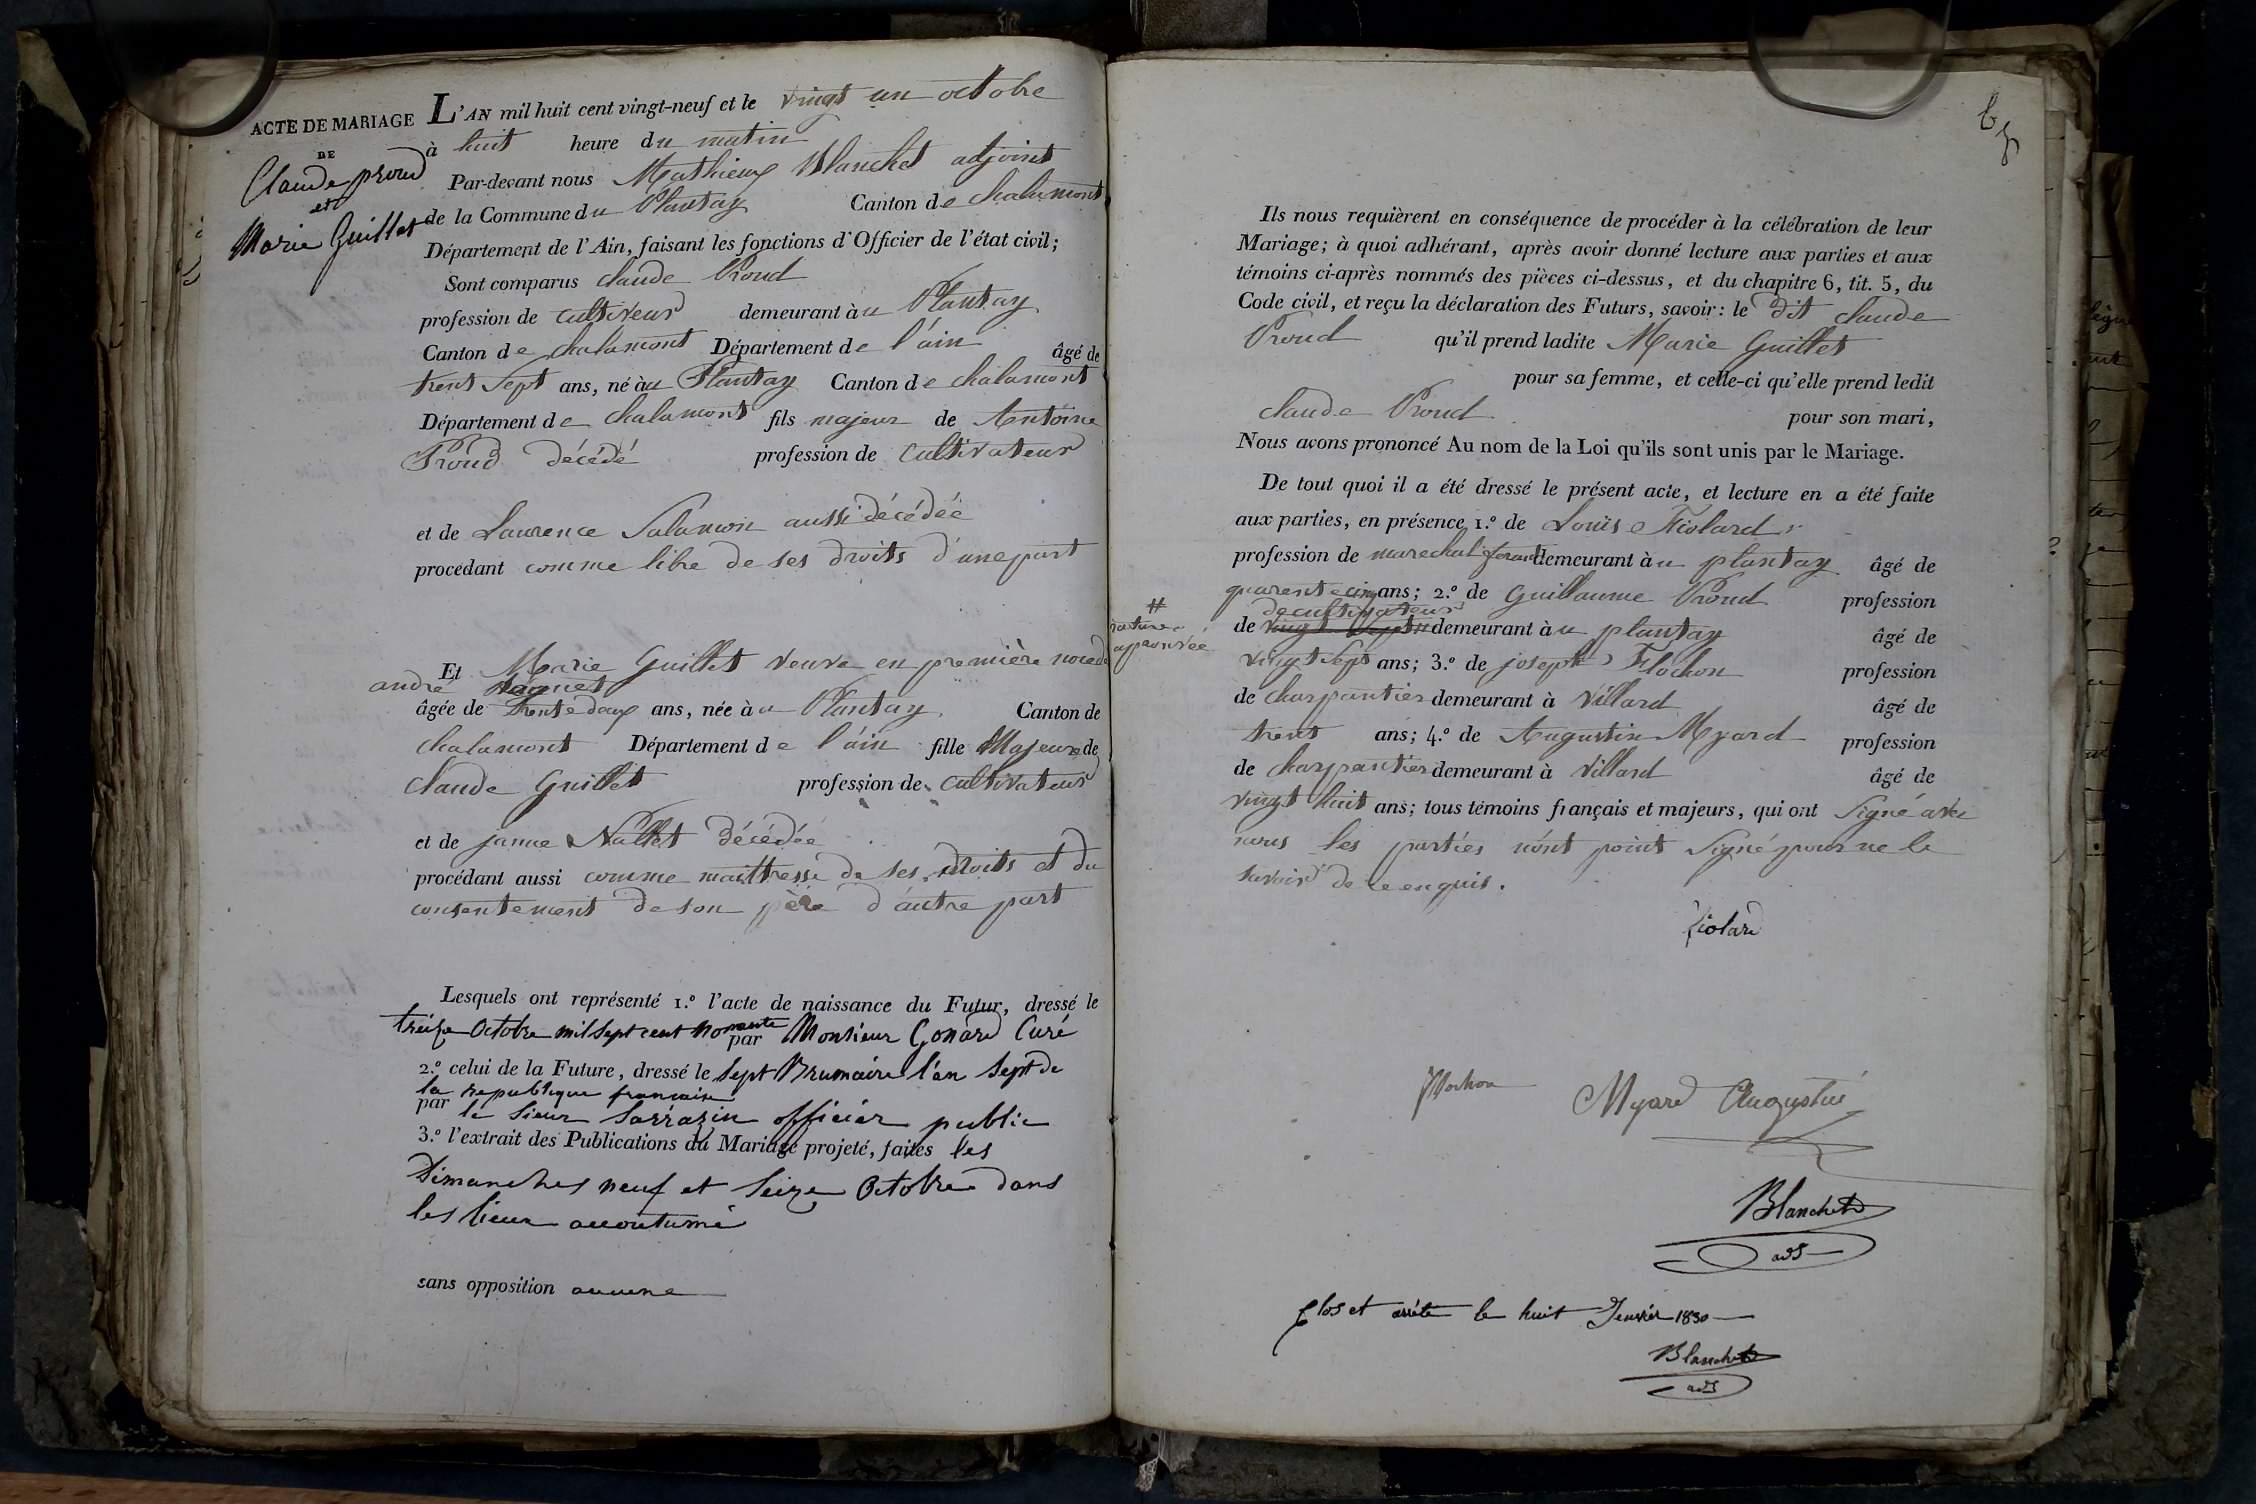 ACTE DE MARIAGE
DE
Claude proud
et
Marie Guillet
L'AN mil huit cent vingt-neuf et le vingt un octobre
à huit heure du matin
Par-devant nous Mathieux Blanchet adjoint
de la Commune du Plantay Canton de chalamont
Département de l'Ain, faisant les fonctions d'Officier de l'état civil;
Sont comparus claude Proud
profession de cultiveur demeurant àu Plantay
Canton de chalamont Département de l'ain âgé de
trent sept ans, né àu Plantay Canton de chalamont
Département de chalamont fils majeur de Antoine
Proud décédé profession de cultivateur
et de Laurence Salamon aussi décédée
procédant comme libre de ses droits d'une part
Et Marie Guillet veuve en première noce de
andré
âgée de trente deux ans, née àu Plantay Canton de
chalamont Département de l'ain fille Majeure de
claude Guillet profession de cultivateur
et de janne Nallet décédée
procédant aussi comme maittresse de ses droits et du
consentement de son père d'autre part
Lesquels ont représenté 1.º l'acte de naissance du Futur, dressé le
treize Octobre mil sept cent nonante par Monsieur Gonard Curé
2.º celui de la Future, dressé le sept Brumaire l'an sept de
la republique francaise
par le sieur Sarrazin officier public
3.º l'extrait des Publications du Mariage projeté, faites les
Dimanches neuf et seize Octobre dans
les lieux accoutumé
sans opposition aucune
Ils nous requièrent en conséquence de procéder à la célébration de leur
Mariage; à quoi adhérant, après avoir donné lecture aux parties et aux
témoins ci-après nommés des pièces ci-dessus, et du chapitre 6, tit. 5, du
Code civil, et reçu la déclaration des Futurs, savoir: le dit claude
Proud qu'il prend ladite Marie Guillet
pour sa femme, et celle-ci qu'elle prend ledit
claude Proud pour son mari,
Nous avons prononcé Au nom de la Loi qu'ils sont unis par le Mariage.
De tout quoi il a été dressé le présent acte, et lecture en a été faite
aux parties, en présence 1.º de Louis Fiolard
profession de marechal ferant demeurant àu plantay âgé de
quarente cinq ans; 2.º de Guillaume Proud profession
de cultivateur
de vingt sept # demeurant àu plantay âgé de
# rature approuvée
vingt sept ans; 3.º de joseph Flochon profession
de charpantier demeurant à villard âgé de
trent ans; 4.º de Augustin Myard profession
de charpantier demeurant à villard âgé de
vingt huit ans; tous témoins français et majeurs, qui ont signé avec
nous les parties n'ont point signé pour ne le
savoir de ce enquis.
fiolard
Flochon
Myard Augustin
Blanchet
adj
Clos et arrêté le huit Janvier 1830
Blanchet
adj